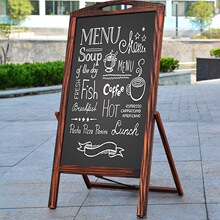 MENU
Menu
Soup
of the day
MENU
FRESH
Fish
Coffee
Breakfast
HOT
ESPRESSO
CAPPUCCINO
AMERICANO
Pasta Pizza Panini
Lunch